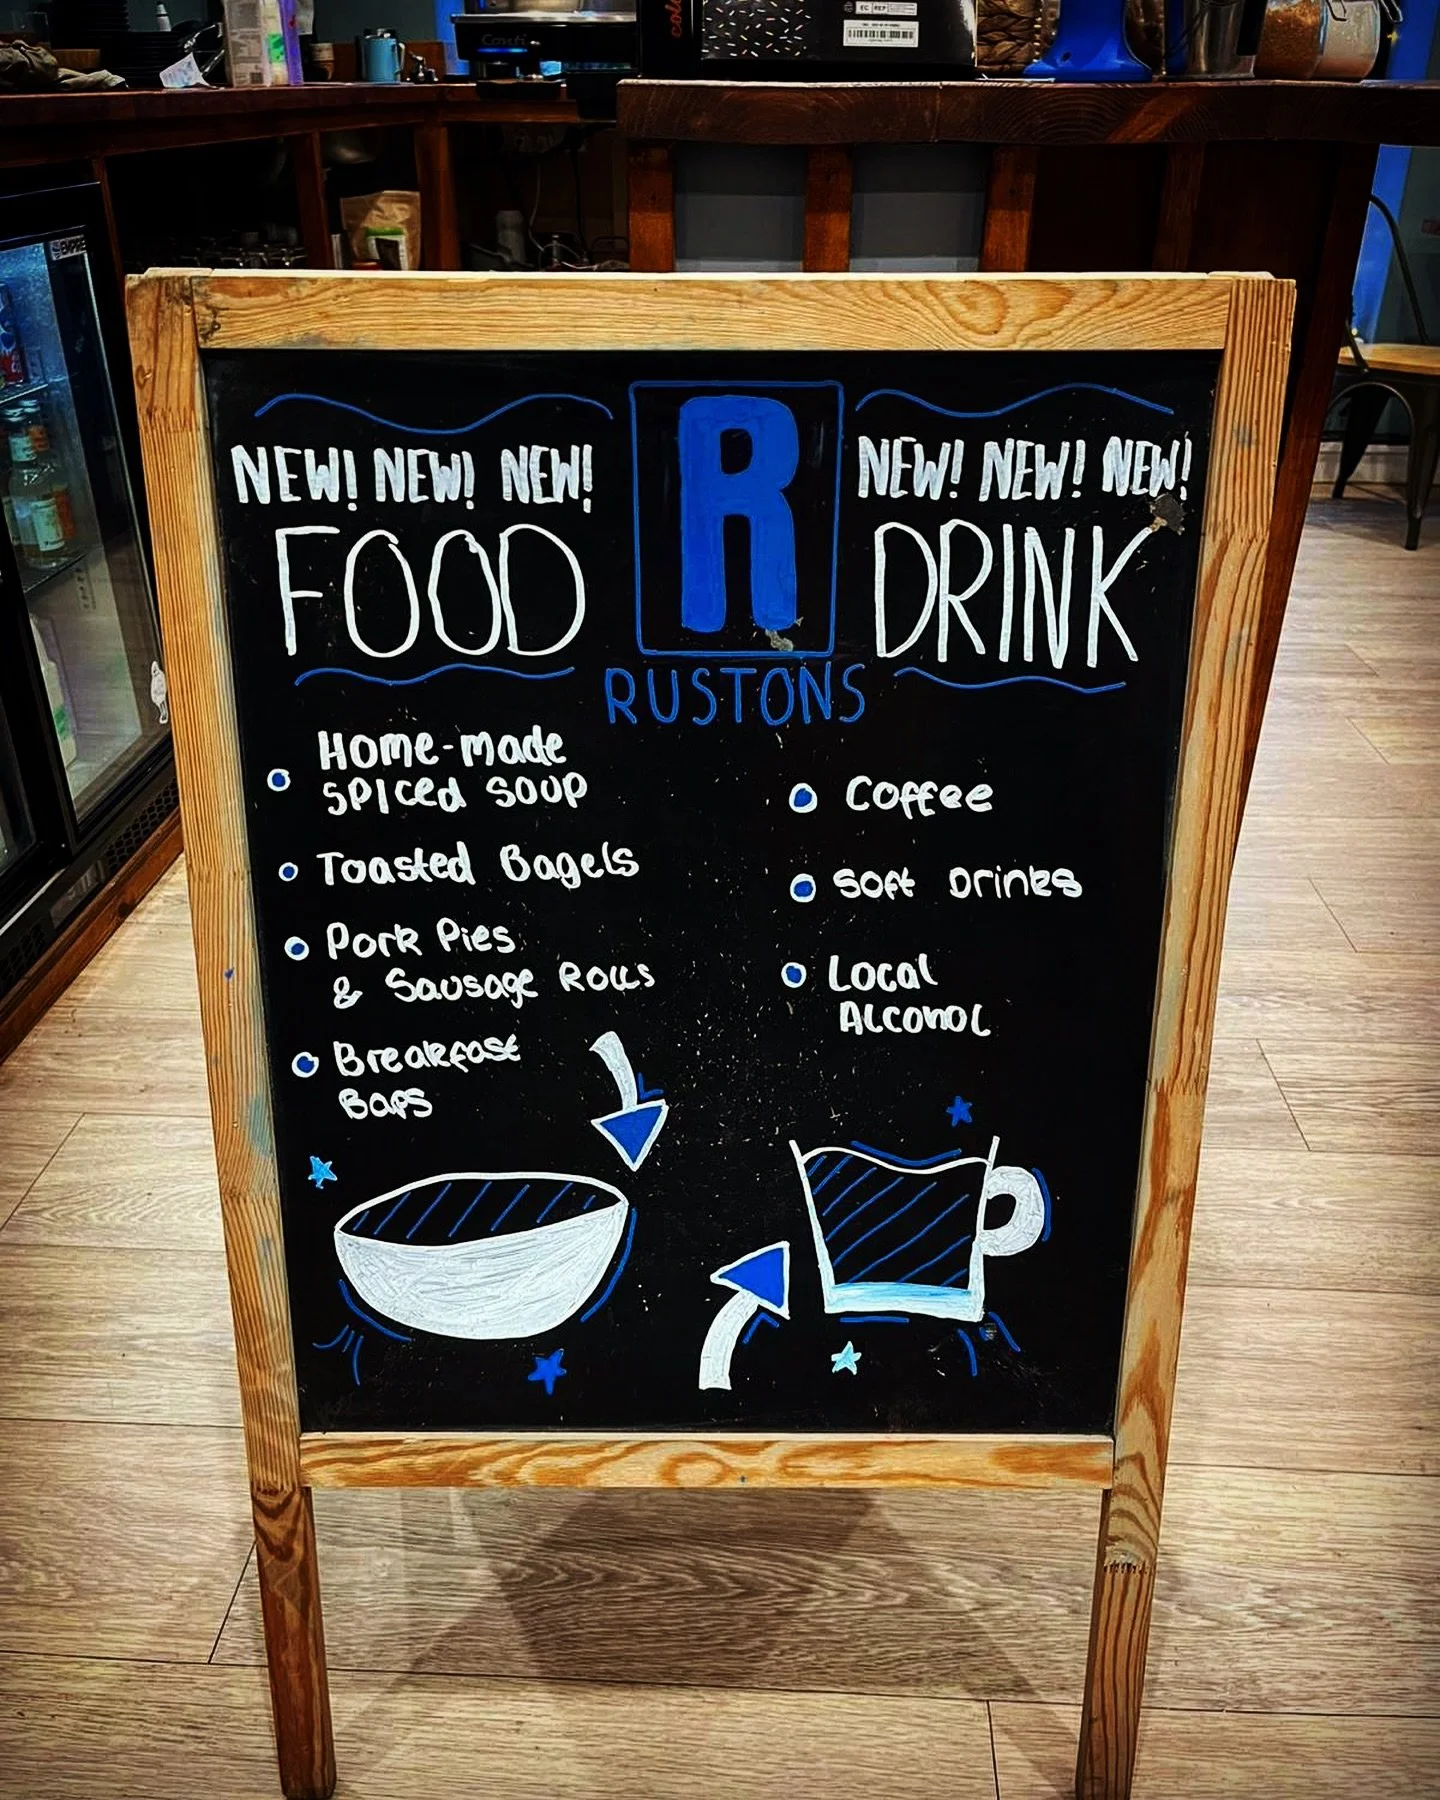 Conti
EC REP
EMPRE
NEW! NEW! NEW!
FOOD
R
RUSTONS
NEW! NEW! NEW!
DRINK
Home-made
Spiced Soup
Toasted Bagels
Pork Pies
& Sausage Rolls
Breakfast
Baps
Coffee
Soft Drinks
Local
Alcohol